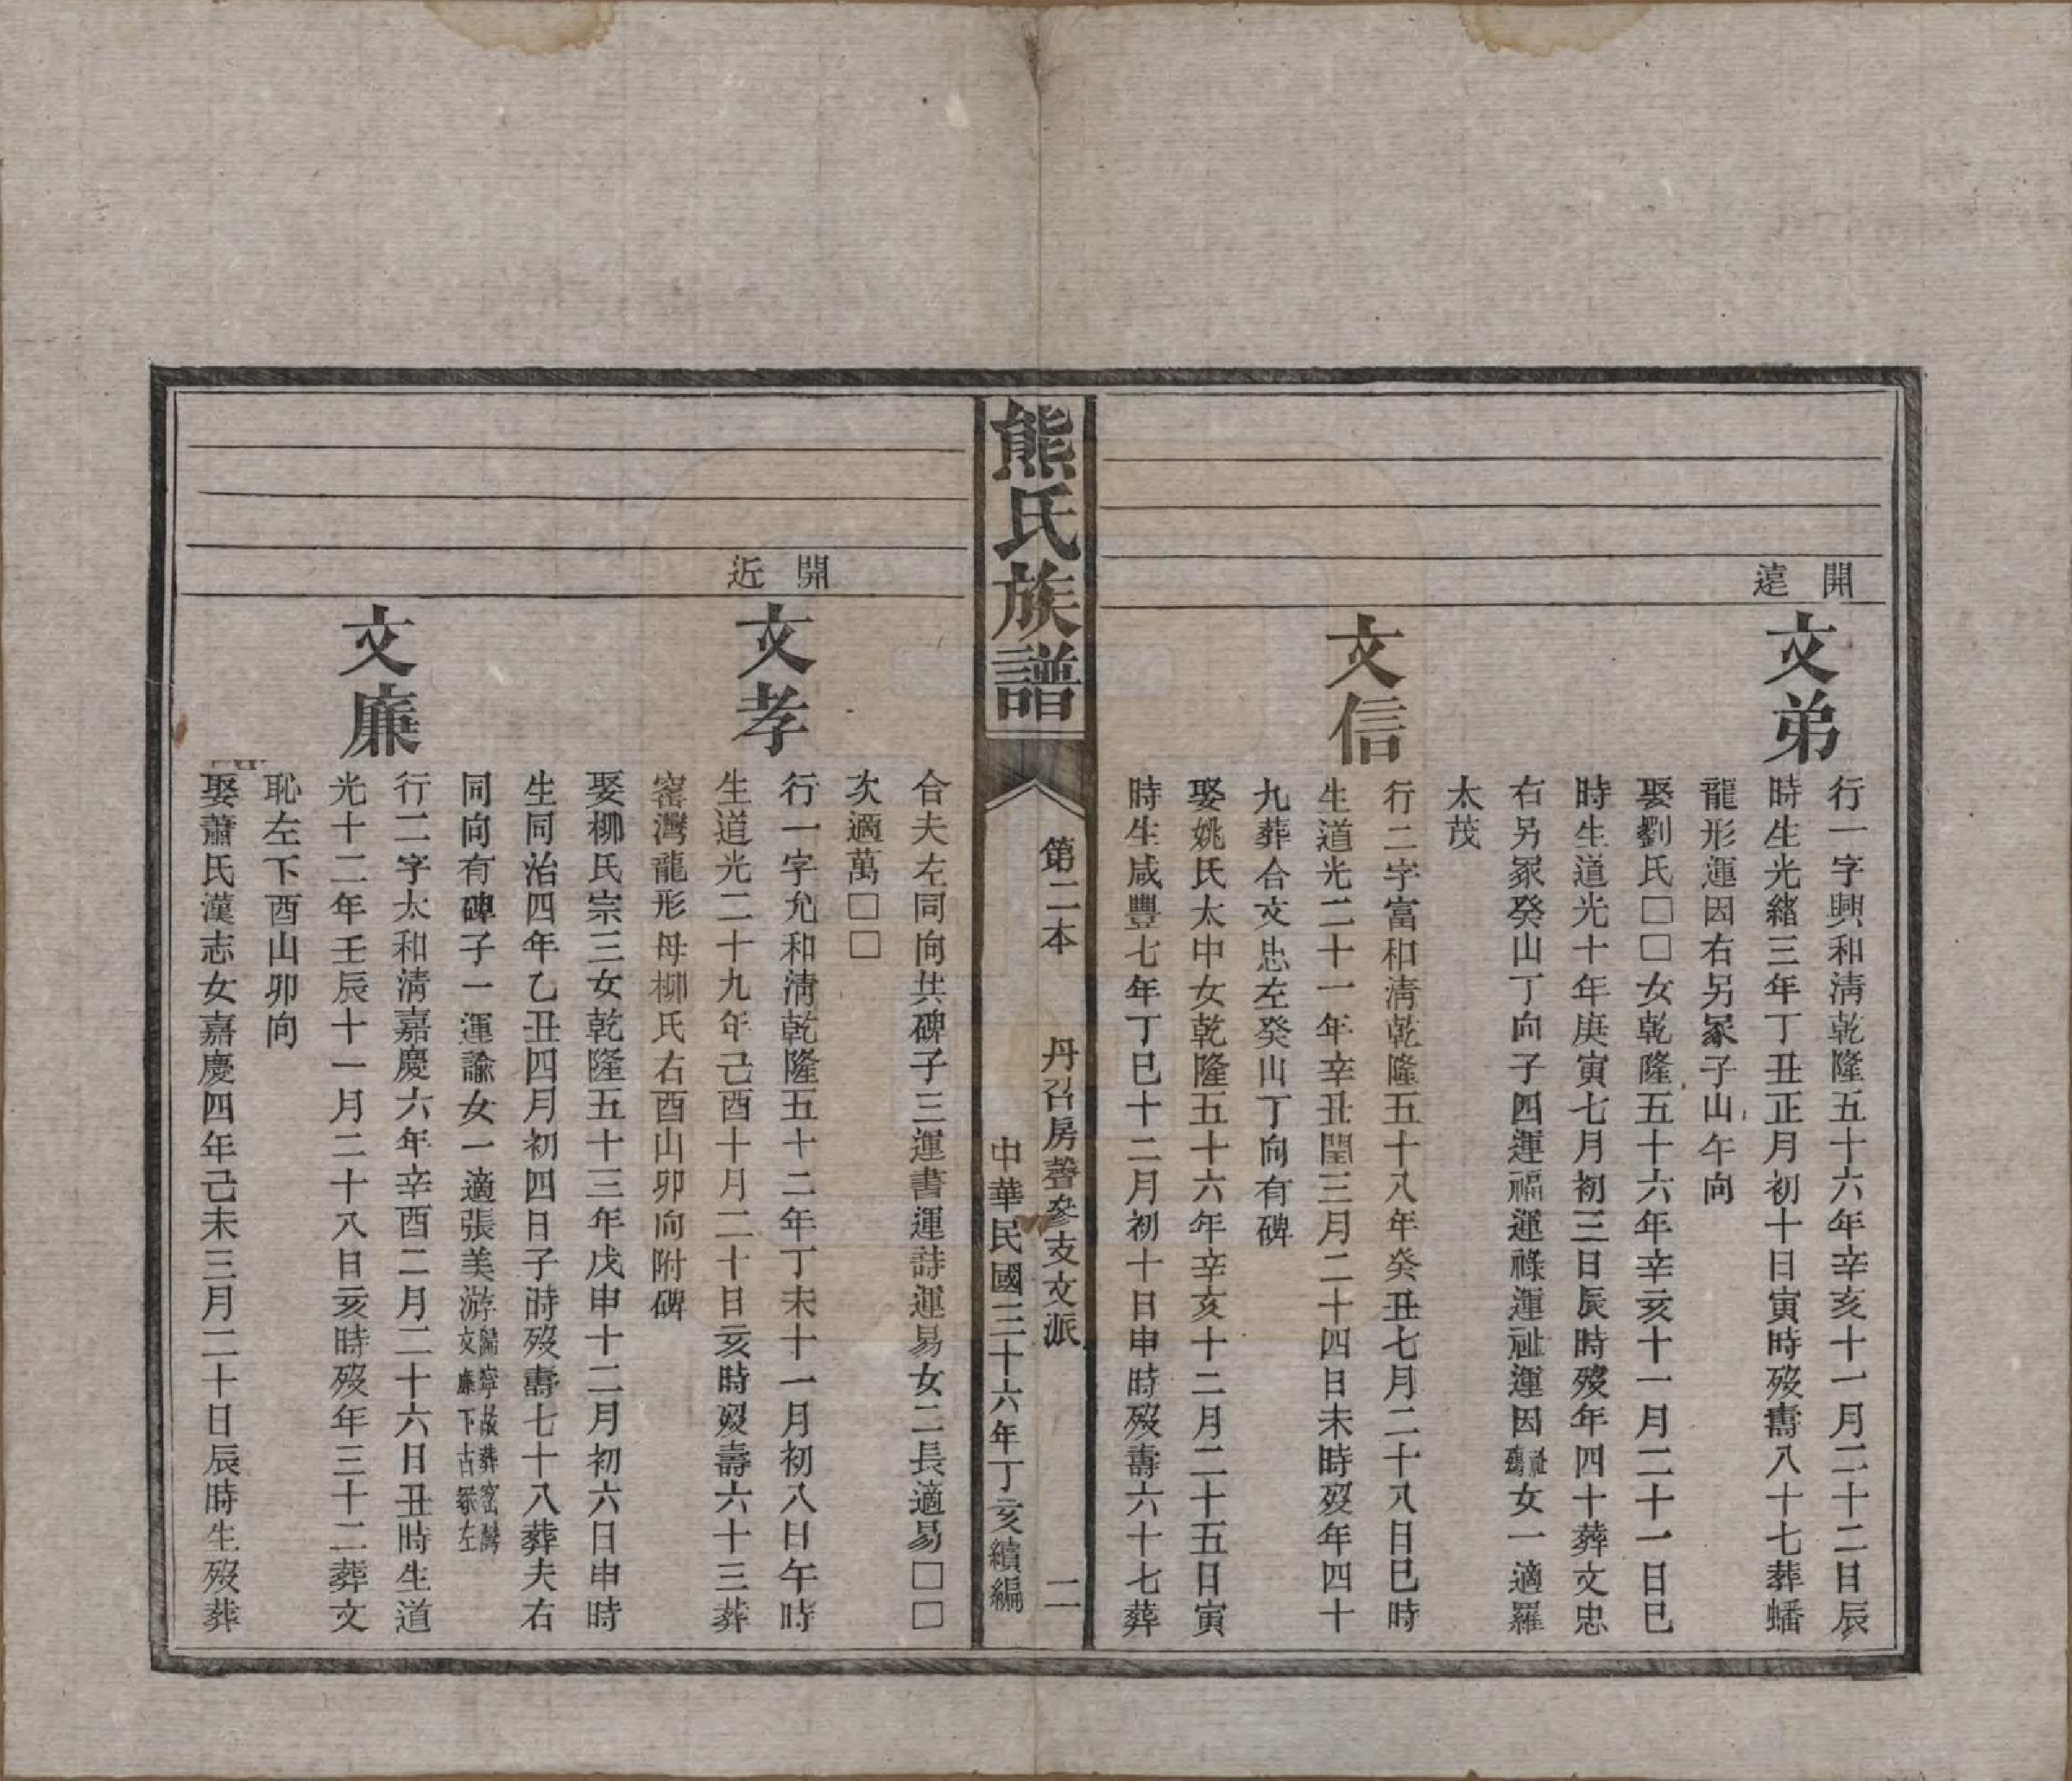 開遠
文弟
行一字興和淸乾隆五十六年辛亥十一月二十二日辰
時生光緖三年丁丑正月初十日寅時歿壽八十七葬蟠
龍形運因右另冢子山午向
娶劉氏□□女乾隆五十六年辛亥十一月二十一日巳
時生道光十年庚寅七月初三日辰時歿年四十葬文忠
右另冢癸山丁向子四運福運祿運祉運因祉殤女一適羅
太茂
文信
行二字富和淸乾隆五十八年癸丑七月二十八日巳時
生道光二十一年辛丑閏三月二十四日未時歿年四十
九葬合文忠左癸山丁向有碑
娶姚氏太中女乾隆五十六年辛亥十二月二十五日寅
時生咸豐七年丁巳十二月初十日申時歿壽六十七葬
熊氏族譜
第二本 丹召房謩參支文派 二
中華民國三十六年丁亥續編
合夫左同向共碑子三運書運詩運易女二長適易□□
次適萬□□
開近
文孝
行一字允和淸乾隆五十二年丁未十一月初八日午時
生道光二十九年己酉十月二十日亥時歿壽六十三葬
窰灣龍形母柳氏右酉山卯向附碑
娶柳氏宗三女乾隆五十三年戊申十二月初六日申時
生同治四年乙丑四月初四日子時歿壽七十八葬夫右
同向有碑子一運諭女一適張美游歸寧故葬窰灣文廉下古冢左
文廉
行二字太和淸嘉慶六年辛酉二月二十六日丑時生道
光十二年壬辰十一月二十八日亥時歿年三十二葬文
恥左下酉山卯向
娶蕭氏漢志女嘉慶四年己未三月二十日辰時生歿葬